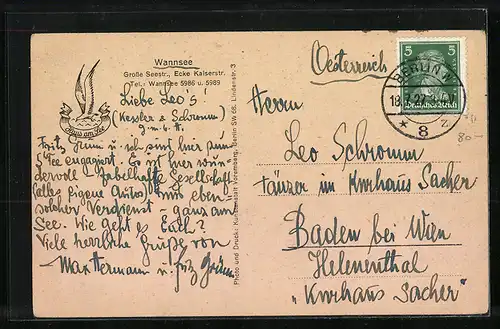 Wannsee
Große Seestr., Ecke Kaiserstr.
Tel.: Wannsee 5986 u. 5989
Haus am See
Liebe Leo's!
(Kessler & Schromm)
Fritz Grün u. ich sind hier zum
5 Tee engagiert. Es ist hier wun-
dervoll. Fabelhafte Gesellschaft
(alles eigene Autos) und eben-
solcher Verdienst - ganz am
See. Wie geht es Euch?
Viele herzliche Grüße von
Max Hermann u. Fritz Grün
Photo und Druck: Kunstanstalt Berlin SW 68, Lindenstr. 3
Oesterreich
5 5
Deutsches Reich
BERLIN
8
Herrn
Leo Schromm
tänzer im Kurhaus Sacher
Baden bei Wien
Helenenthal
„Kurhaus Sacher"
80-